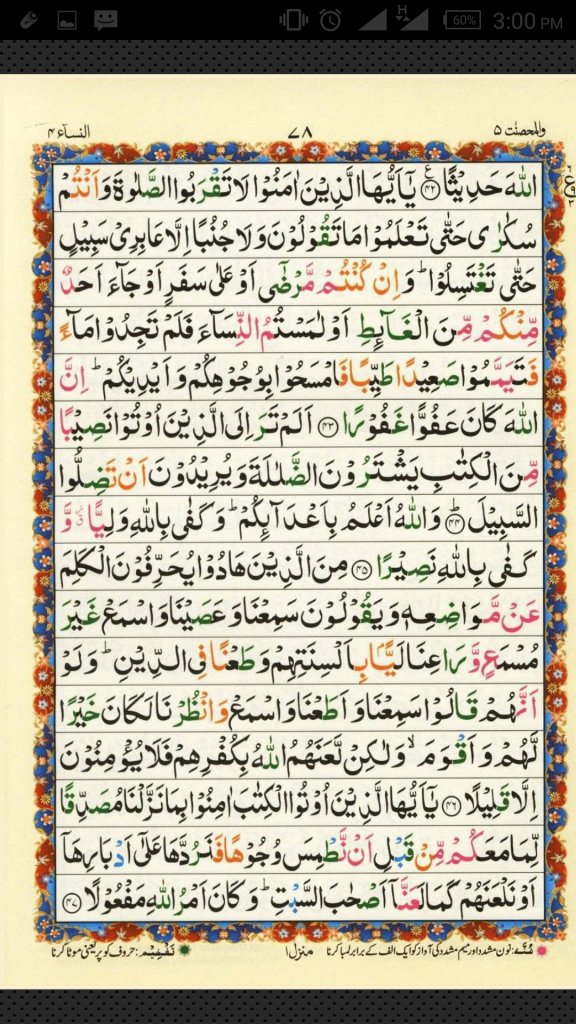 60% 3:00 PM
والمحصنٰت ۵ ۷۸ النسآء ۴
اللّٰهَ حَدِيْثًا ۟ ﴿۴۲﴾ يٰٓاَيُّهَا الَّذِيْنَ اٰمَنُوْا لَا تَقْرَبُوا الصَّلٰوةَ وَاَنْتُمْ
سُكٰرٰى حَتّٰى تَعْلَمُوْا مَا تَقُوْلُوْنَ وَلَا جُنُبًا اِلَّا عَابِرِىْ سَبِيْلٍ
حَتّٰى تَغْتَسِلُوْا ؕ وَاِنْ كُنْتُمْ مَّرْضٰٓى اَوْ عَلٰى سَفَرٍ اَوْ جَآءَ اَحَدٌ
مِّنْكُمْ مِّنَ الْغَآئِطِ اَوْ لٰمَسْتُمُ النِّسَآءَ فَلَمْ تَجِدُوْا مَآءً
فَتَيَمَّمُوْا صَعِيْدًا طَيِّبًا فَامْسَحُوْا بِوُجُوْهِكُمْ وَاَيْدِيْكُمْ ؕ اِنَّ
اللّٰهَ كَانَ عَفُوًّا غَفُوْرًا ﴿۴۳﴾ اَلَمْ تَرَ اِلَى الَّذِيْنَ اُوْتُوْا نَصِيْبًا
مِّنَ الْكِتٰبِ يَشْتَرُوْنَ الضَّلٰلَةَ وَيُرِيْدُوْنَ اَنْ تَضِلُّوا
السَّبِيْلَ ؕ ﴿۴۴﴾ وَاللّٰهُ اَعْلَمُ بِاَعْدَآئِكُمْ ؕ وَكَفٰى بِاللّٰهِ وَلِيًّا وَّ
كَفٰى بِاللّٰهِ نَصِيْرًا ﴿۴۵﴾ مِنَ الَّذِيْنَ هَادُوْا يُحَرِّفُوْنَ الْكَلِمَ
عَنْ مَّوَاضِعِهٖ وَيَقُوْلُوْنَ سَمِعْنَا وَعَصَيْنَا وَاسْمَعْ غَيْرَ
مُسْمَعٍ وَّرَاعِنَا لَيًّۢا بِاَلْسِنَتِهِمْ وَطَعْنًا فِى الدِّيْنِ ؕ وَلَوْ
اَنَّهُمْ قَالُوْا سَمِعْنَا وَاَطَعْنَا وَاسْمَعْ وَانْظُرْنَا لَكَانَ خَيْرًا
لَّهُمْ وَاَقْوَمَ ۙ وَلٰكِنْ لَّعَنَهُمُ اللّٰهُ بِكُفْرِهِمْ فَلَا يُؤْمِنُوْنَ
اِلَّا قَلِيْلًا ﴿۴۶﴾ يٰٓاَيُّهَا الَّذِيْنَ اُوْتُوا الْكِتٰبَ اٰمِنُوْا بِمَا نَزَّلْنَا مُصَدِّقًا
لِّمَا مَعَكُمْ مِّنْ قَبْلِ اَنْ نَّطْمِسَ وُجُوْهًا فَنَرُدَّهَا عَلٰٓى اَدْبَارِهَآ
اَوْ نَلْعَنَهُمْ كَمَا لَعَنَّآ اَصْحٰبَ السَّبْتِ ؕ وَكَانَ اَمْرُ اللّٰهِ مَفْعُوْلًا ﴿۴۷﴾
غُنَّه: نون مشدد اور میم مشدد کی آواز کو ایک الف کے برابر لمبا کرنا منزل ۱ تَفْخِیْم: حروف کو پر یعنی موٹا کرنا